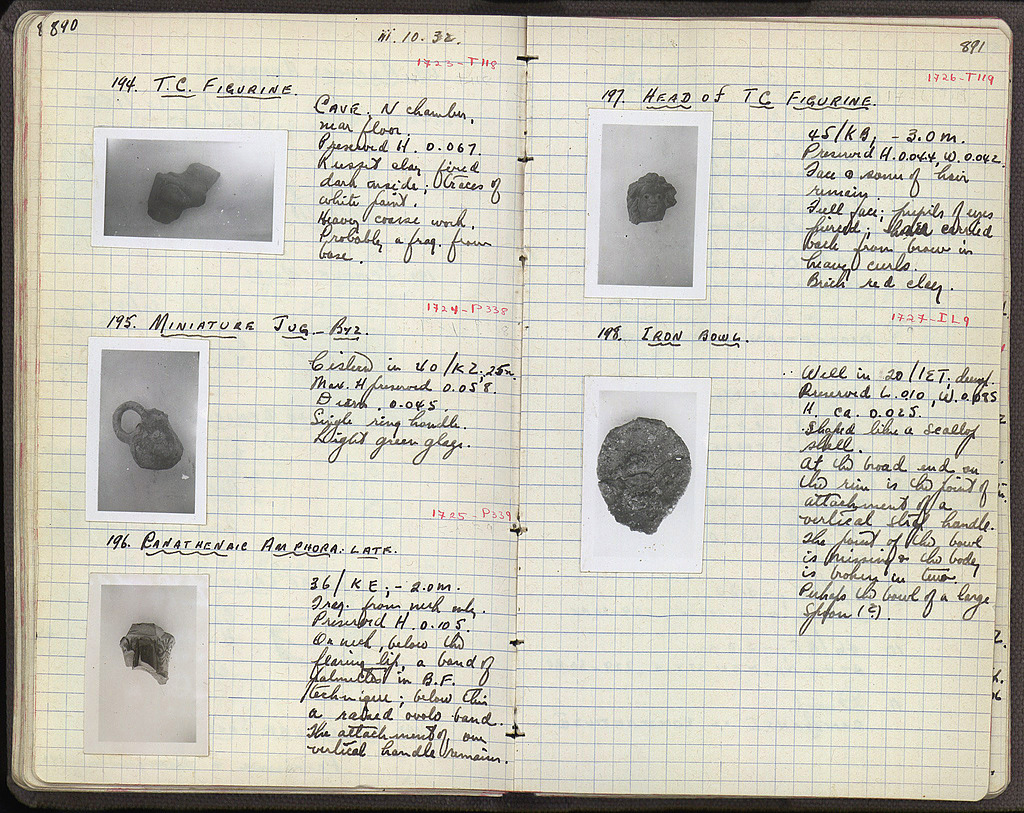 890
III. 10. 32.
1723-T118
194. T.C. FIGURINE.
CAVE, N chamber,
near floor.
Preserved H. 0.067.
Russet clay fired
dark inside; traces of
white paint.
Heavy coarse work.
Probably a frag. from
base.
1724-P338
195. MINIATURE JUG - BYZ.
Cistern in 40/KZ; 25m.
Max. H preserved 0.058.
Diam. 0.045.
Single ring handle.
Light green glaze.
1725-P339
196. PANATHENAIC AMPHORA: LATE.
36/KE; -2.0m.
Frag. from neck only.
Preserved H. 0.105.
On neck, below the
flaring lip, a band of
palmettes in B.F.
technique; below this
a raised ovolo band.
The attachment of one
vertical handle remains.
891
1726-T119
197. HEAD OF TC FIGURINE.
45/KB; -3.0m.
Preserved H. 0.044, W. 0.042.
Face & some of hair
remain.
Full face; pupils of eyes
pierced; hair carried
back from brow in
heavy curls.
Brick red clay.
1727-IL9
198. IRON BOWL.
Well in 20/IET, dump.
Preserved L. 0.10, W. 0.085
H. ca. 0.025.
Shaped like a scallop
shell.
At the broad end on
the rim is the point of
attachment of a
vertical handle.
The point of the bowl
is missing & the body
is broken in two.
Perhaps the bowl of a large
spoon (?).